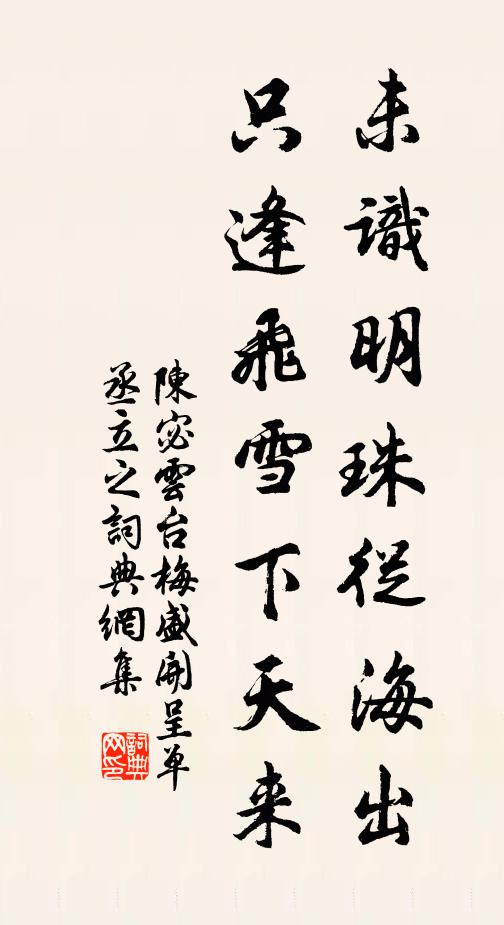 未識明珠從海出
只逢飛雪下天来
陳宓雲台梅盛開呈单
丞立之詞典網集
詞典网印